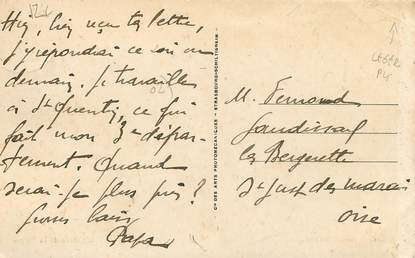 Hier, bien reçu ta lettre,
j'y répondrai ce soir ou
demain. Je travaille
à St Quentin, ce qui
fait mon 3e dépar-
tement. Quand
serai-je plus près ?
Gros baisers
Papa
Cie DES ARTS PHOTOMÉCANIQUES - STRASBOURG-SCHILTIGHEIM
M. Fernand
Gaudissard
les Bergerette
St Just des marais
Oise